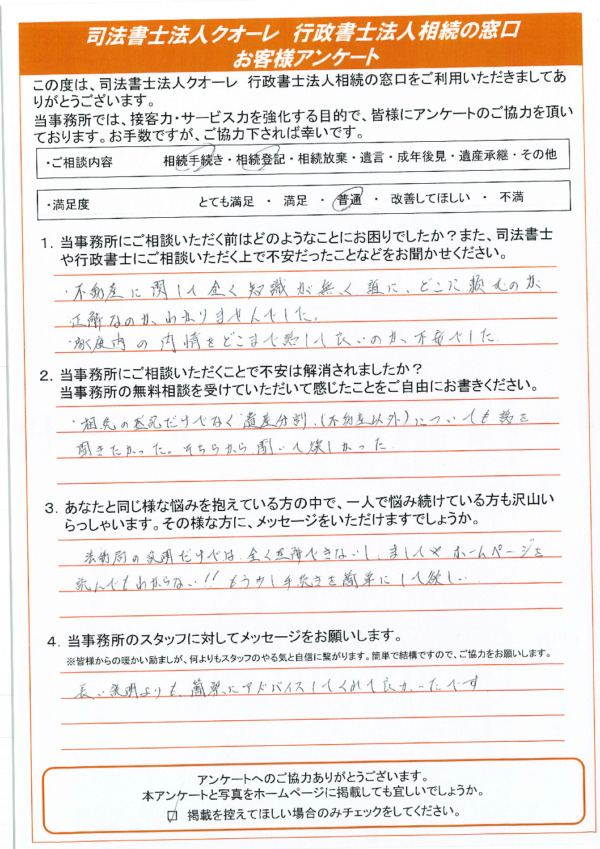 司法書士法人クオーレ 行政書士法人相続の窓口
お客様アンケート
この度は、司法書士法人クオーレ 行政書士法人相続の窓口をご利用いただきましてあ
りがとうございます。
当事務所では、接客力・サービス力を強化する目的で、皆様にアンケートのご協力を頂い
ております。お手数ですが、ご協力下されば幸いです。
・ご相談内容 相続手続き・相続登記・相続放棄・遺言・成年後見・遺産承継・その他
・満足度 とても満足 ・ 満足 ・ 普通 ・ 改善してほしい ・ 不満
1. 当事務所にご相談いただく前はどのようなことにお困りでしたか？また、司法書士
や行政書士にご相談いただく上で不安だったことなどをお聞かせください。
・不動産に関して全く知識が無く、誰に、どこに頼むのが、
正解なのか、わかりませんでした。
・家庭内の内情をどこまで話して良いのか、不安でした。
2. 当事務所にご相談いただくことで不安は解消されましたか？
当事務所の無料相談を受けていただいて感じたことをご自由にお書きください。
・相続の登記だけでなく遺産分割、(不動産以外)についても話を
聞きたかった。そちらから聞いて欲しかった
3. あなたと同じ様な悩みを抱えている方の中で、一人で悩み続けている方も沢山い
らっしゃいます。その様な方に、メッセージをいただけますでしょうか。
法務局の説明だけでは、全く理解できないし、ましてやホームページを
読んでもわからない!! もう少し手続きを簡単にして欲しい
4. 当事務所のスタッフに対してメッセージをお願いします。
※皆様からの暖かい励ましが、何よりもスタッフのやる気と自信に繋がります。簡単で結構ですので、ご協力をお願いします。
長い説明よりも、簡潔にアドバイスしてくれて良かったです
アンケートへのご協力ありがとうございます。
本アンケートと写真をホームページに掲載しても宜しいでしょうか。
☑ 掲載を控えてほしい場合のみチェックをしてください。